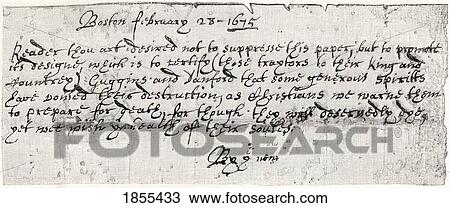 Boston february 28-1675
Reader thou art desired not to suppresse this paper, but to promote
its designe, which is to certify (those traytors to their king and
Countrey) Guggins and Danford that some generous spirits
have vowed their destruction, as Christians we warne them
to prepare for death, for though they will deservedly dye,
yet we wish ye health of their soules.
FOTOSEARCH
1855433 www.fotosearch.com